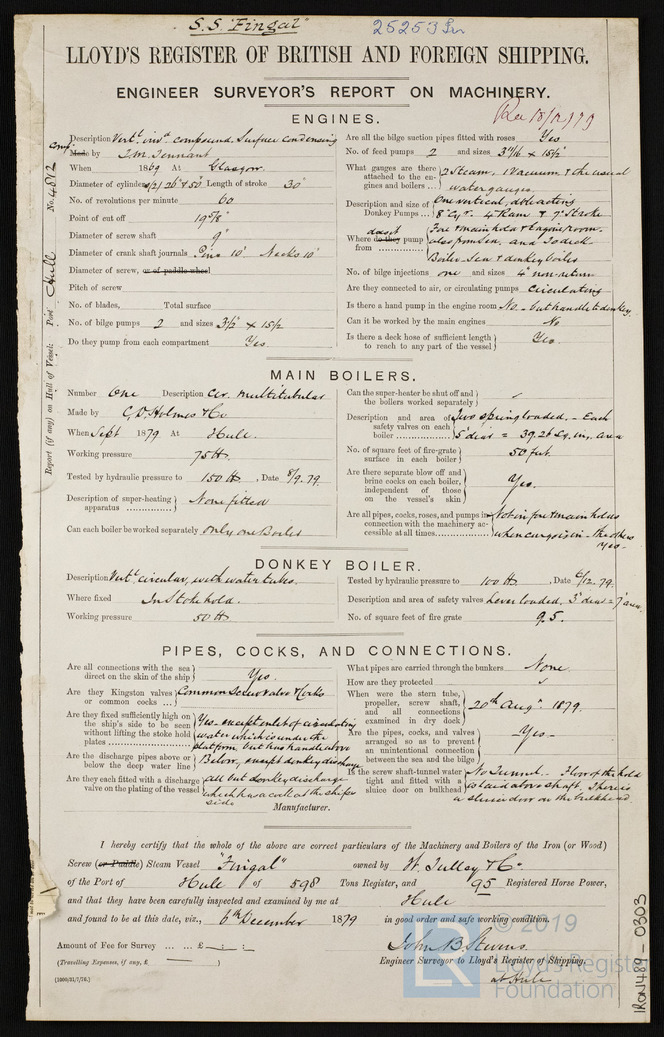 S.S. "Fingal"
25253
LLOYD'S REGISTER OF BRITISH AND FOREIGN SHIPPING.
ENGINEER SURVEYOR'S REPORT ON MACHINERY.
Rec 18/12/79
ENGINES.
Description Vert. inv. compound, Surface Condensing
Comp
Made by T. M. Tennant
When 1869 At Glasgow
Diameter of cylinders 26" & 50" Length of stroke 30"
No. of revolutions per minute 60
Point of cut off 19 5/8"
Diameter of screw shaft 9"
Diameter of crank shaft journals Pins 10" Necks 10"
Diameter of screw, or of paddle wheel
Pitch of screw
No. of blades, Total surface
No. of bilge pumps 2 and sizes 3 1/2 x 15 1/2
Do they pump from each compartment Yes.
Are all the bilge suction pipes fitted with roses Yes.
No. of feed pumps 2 and sizes 3 7/16 x 15 1/2
What gauges are there attached to the engines and boilers ... 2 Steam, 1 Vacuum & the usual water gauges.
Description and size of Donkey Pumps ... One vertical, dble acting 8" Cyr. 4" Ram & 9" Stroke
Where does it do they pump from Fore & main hold & Engine room, also from Sea, and to deck Boiler Sea & donkey boiler
No. of bilge injections one and sizes 4" non-return
Are they connected to air, or circulating pumps Circulating
Is there a hand pump in the engine room No - but handle to donkey.
Can it be worked by the main engines No
Is there a deck hose of sufficient length to reach to any part of the vessel Yes.
Report (if any) on Hull of Vessel: Port Hull No. 4812
MAIN BOILERS.
Number One Description Cir. multitubular
Made by C. D. Holmes & Co
When Sept 1879 At Hull.
Working pressure 75 lb
Tested by hydraulic pressure to 150 lb, Date 8/9.79.
Description of super-heating apparatus ............ None fitted
Can each boiler be worked separately only one Boiler
Can the super-heater be shut off and the boilers worked separately
Description and area of safety valves on each boiler ............... Two spring loaded. - Each 5" diar = 39.26 Sq. in. area
No. of square feet of fire-grate surface in each boiler 50 feet.
Are there separate blow off and brine cocks on each boiler, independent of those on the vessel's skin Yes.
Are all pipes, cocks, roses, and pumps in connection with the machinery accessible at all times............ Not in fore & main holds when cargo is in - the others Yes -
DONKEY BOILER.
Description Vert. circular, with water tubes.
Where fixed In Stokehold.
Working pressure 50 lb
Tested by hydraulic pressure to 100 lb, Date 6/12.79.
Description and area of safety valves Lever loaded, 3" diar = 7" area.
No. of square feet of fire grate 9.5.
PIPES, COCKS, AND CONNECTIONS.
Are all connections with the sea direct on the skin of the ship Yes.
Are they Kingston valves or common cocks ... Common Screw valve & Cocks
Are they fixed sufficiently high on the ship's side to be seen without lifting the stoke hold plates .................. Yes - except inlet of circulating water which is under the platform, but has handle above
Are the discharge pipes above or below the deep water line Below, except donkey discharge
Are they each fitted with a discharge valve on the plating of the vessel All but donkey discharge which has a cock at the ship's side
What pipes are carried through the bunkers None.
How are they protected
When were the stern tube, propeller, screw shaft, and all connections examined in dry dock 20th Augt. 1879.
Are the pipes, cocks, and valves arranged so as to prevent an unintentional connection between the sea and the bilge - Yes -
Is the screw shaft-tunnel water tight and fitted with a sluice door on bulkhead No Tunnel. - Floor of the hold is laid above shaft. There is a sluice door on the bulkhead
Manufacturer.
I hereby certify that the whole of the above are correct particulars of the Machinery and Boilers of the Iron (or Wood)
Screw (or Paddle) Steam Vessel "Fingal" owned by W. Tulley & Co.
of the Port of Hull of 598 Tons Register, and 95 Registered Horse Power,
and that they have been carefully inspected and examined by me at Hull
and found to be at this date, viz., 6th December 1879 in good order and safe working condition.
Amount of Fee for Survey ... ... £ : :
(Travelling Expenses, if any, £ )
[1000/21/7/76.]
John B. Stevens
Engineer Surveyor to Lloyd's Register of Shipping,
at Hull
© 2019
LR
Lloyd's Register
Foundation
IRON489-0303